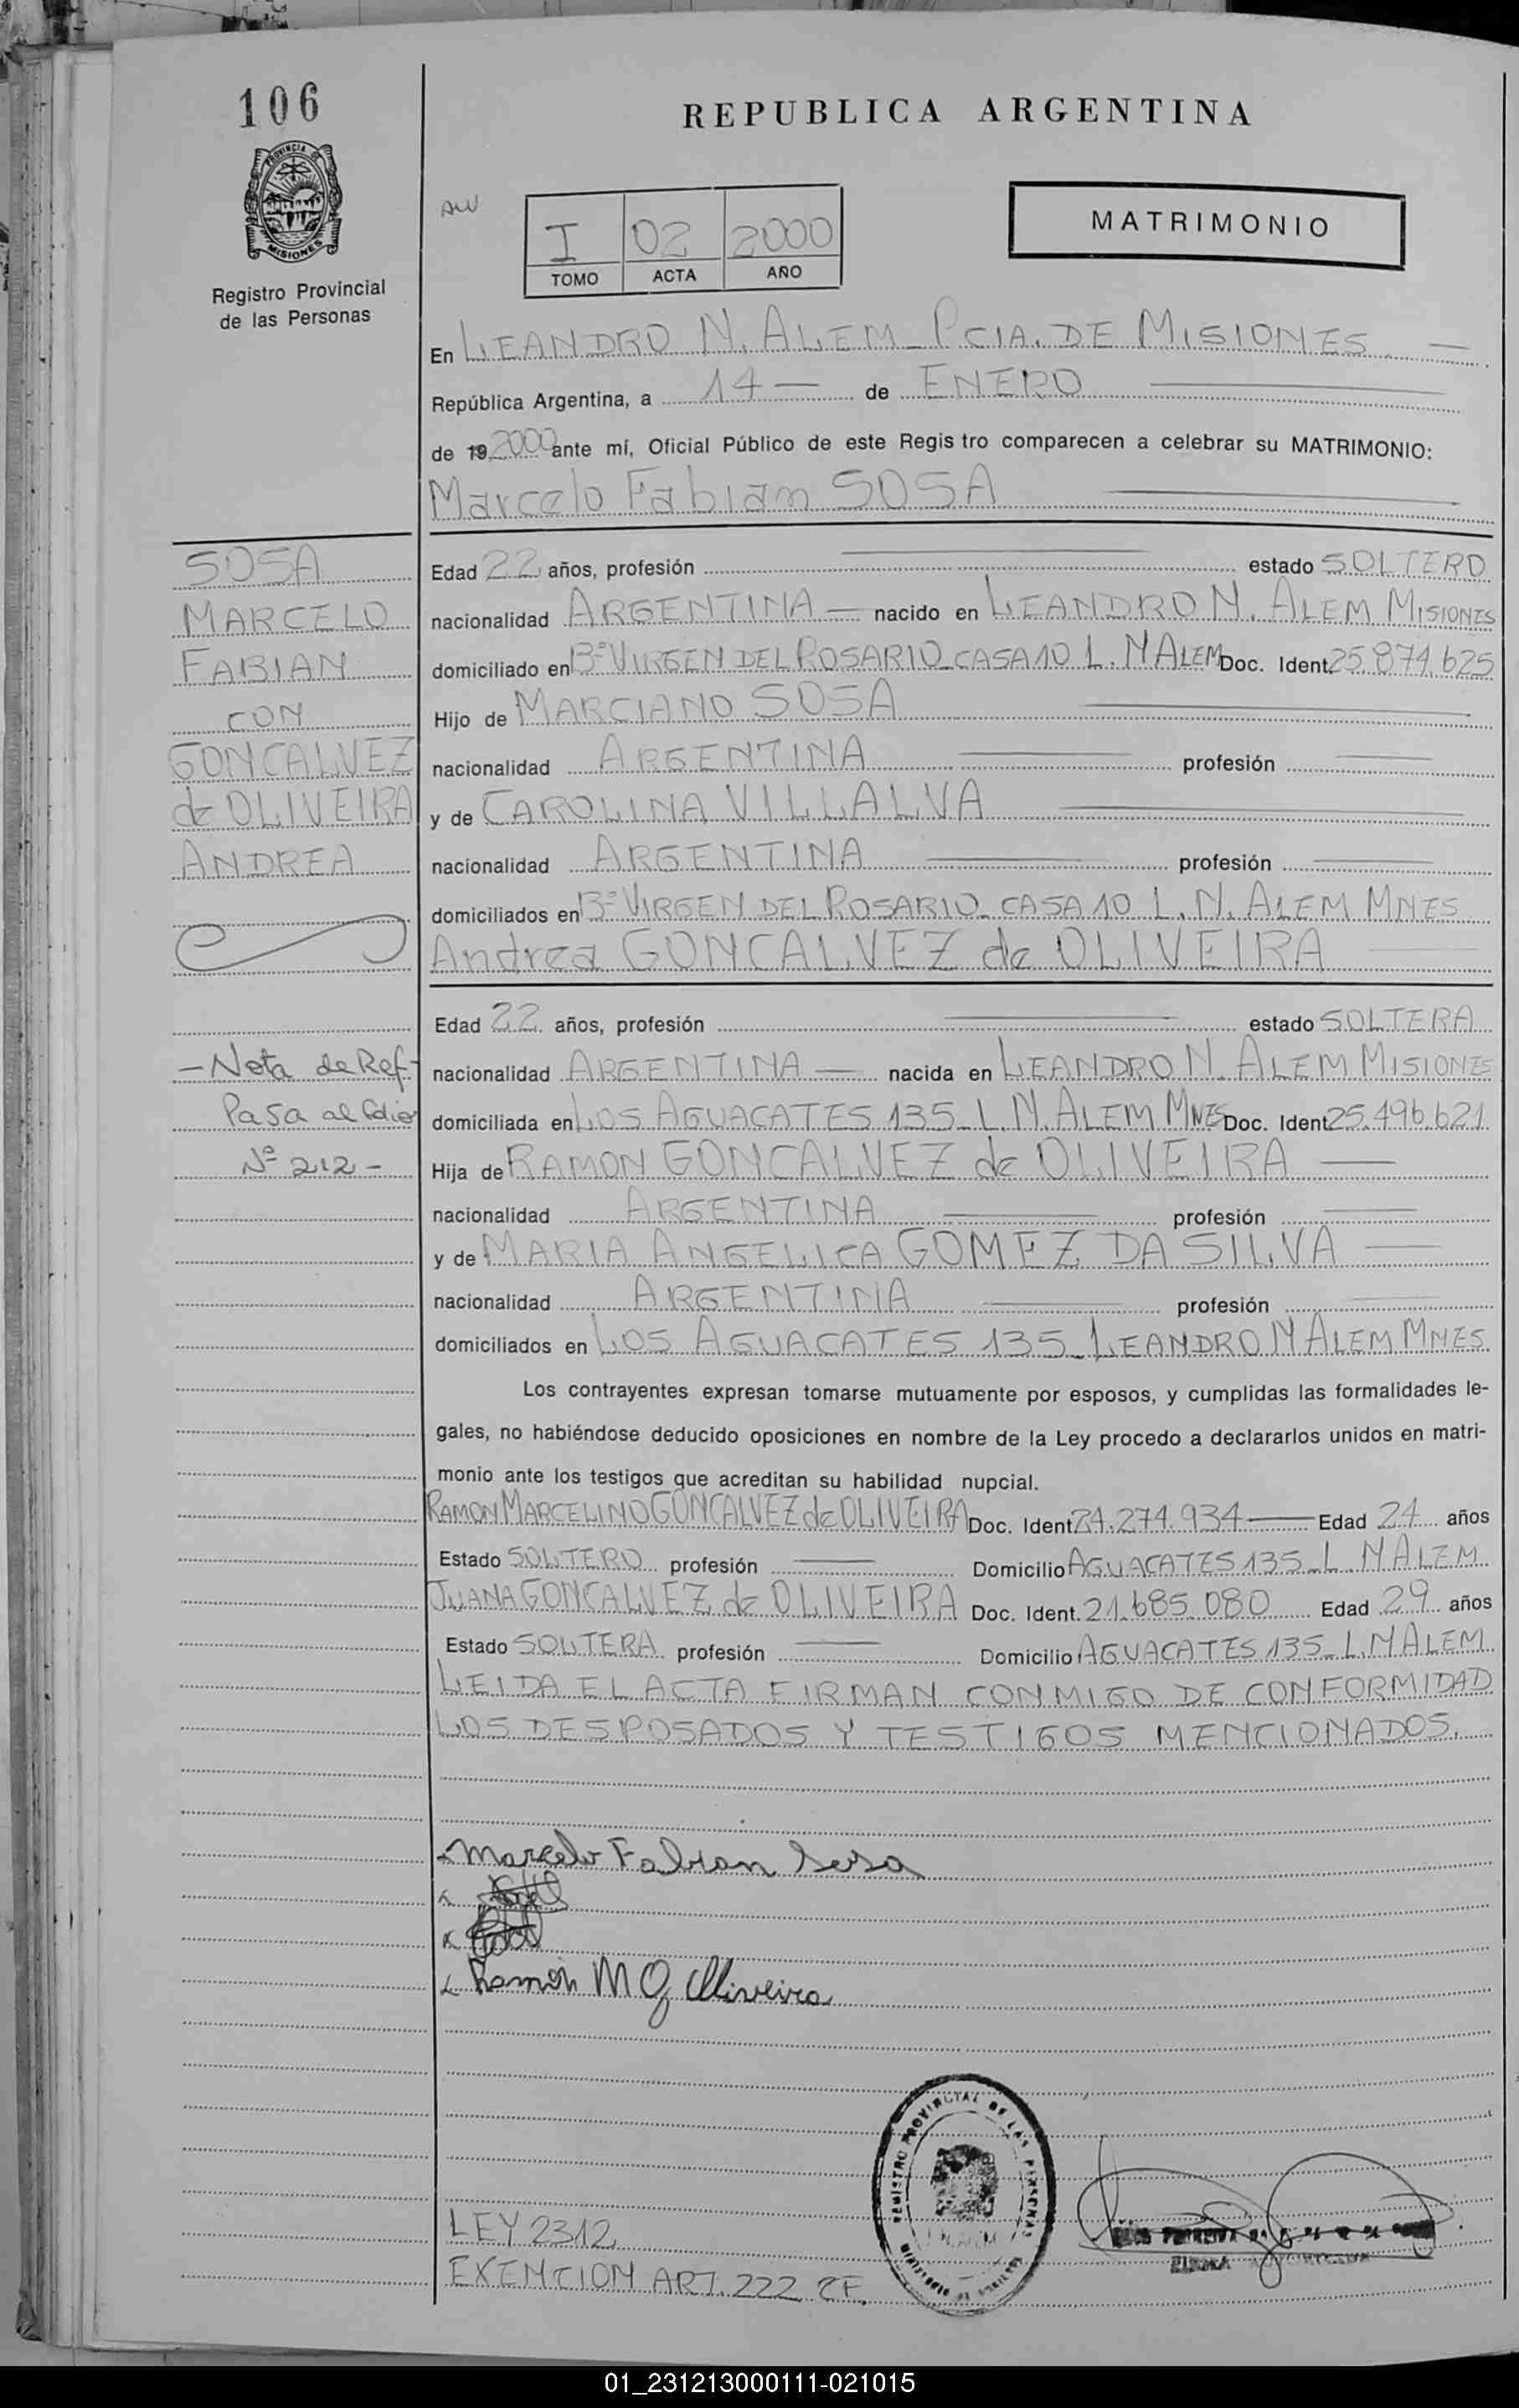 106
REPUBLICA ARGENTINA
PROVINCIA DE
MISIONES
Registro Provincial
de las Personas
I 02 2000
TOMO ACTA AÑO
MATRIMONIO
En LEANDRO N. ALEM_ PCIA. DE MISIONES. —
República Argentina, a 14 — de ENERO
de 19 2000 ante mí, Oficial Público de este Regis tro comparecen a celebrar su MATRIMONIO:
Marcelo Fabian SOSA
SOSA
MARCELO
FABIAN
CON
GONCALVEZ
de OLIVEIRA
ANDREA
Edad 22 años, profesión — estado SOLTERO
nacionalidad ARGENTINA — nacido en LEANDRO N. ALEM MISIONES
domiciliado en Bº VIRGEN DEL ROSARIO_ CASA 10 L. N ALEM Doc. Ident. 25.871.625
Hijo de MARCIANO SOSA
nacionalidad ARGENTINA — profesión —
y de CAROLINA VILLALVA
nacionalidad ARGENTINA — profesión —
domiciliados en Bº VIRGEN DEL ROSARIO_ CASA 10 L. N. ALEM MNES
Andrea GONCALVEZ de OLIVEIRA
Edad 22 años, profesión — estado SOLTERA
nacionalidad ARGENTINA — nacida en LEANDRO N. ALEM MISIONES
domiciliada en LOS AGUACATES 135_ L. N. ALEM MNES Doc. Ident 25.496.621
Hija de RAMON GONCALVEZ de OLIVEIRA —
nacionalidad ARGENTINA — profesión —
y de MARIA ANGELICA GOMEZ DA SILVA —
nacionalidad ARGENTINA — profesión —
domiciliados en LOS AGUACATES 135_ LEANDRO N ALEM MNES.
— Nota de Ref-
Pasa al folio
Nº 212 -
Los contrayentes expresan tomarse mutuamente por esposos, y cumplidas las formalidades le-
gales, no habiéndose deducido oposiciones en nombre de la Ley procedo a declararlos unidos en matri-
monio ante los testigos que acreditan su habilidad nupcial.
RAMON MARCELINO GONCALVEZ de OLIVEIRA Doc. Ident 24.274.934 — Edad 24 años
Estado SOLTERO profesión — Domicilio AGUACATES 135_ L. N ALEM
JUANA GONCALVEZ de OLIVEIRA Doc. Ident. 21.685.080 Edad 29 años
Estado SOLTERA profesión — Domicilio AGUACATES 135_ L. N ALEM
LEIDA EL ACTA FIRMAN CONMIGO DE CONFORMIDAD
LOS DESPOSADOS Y TESTIGOS MENCIONADOS.
Marcelo Fabian Sosa
Ramón M G Oliveira
REGISTRO PROVINCIAL DE LAS PERSONAS
LEY 2312
EXENCION ART. 222 CF.
01_231213000111-021015